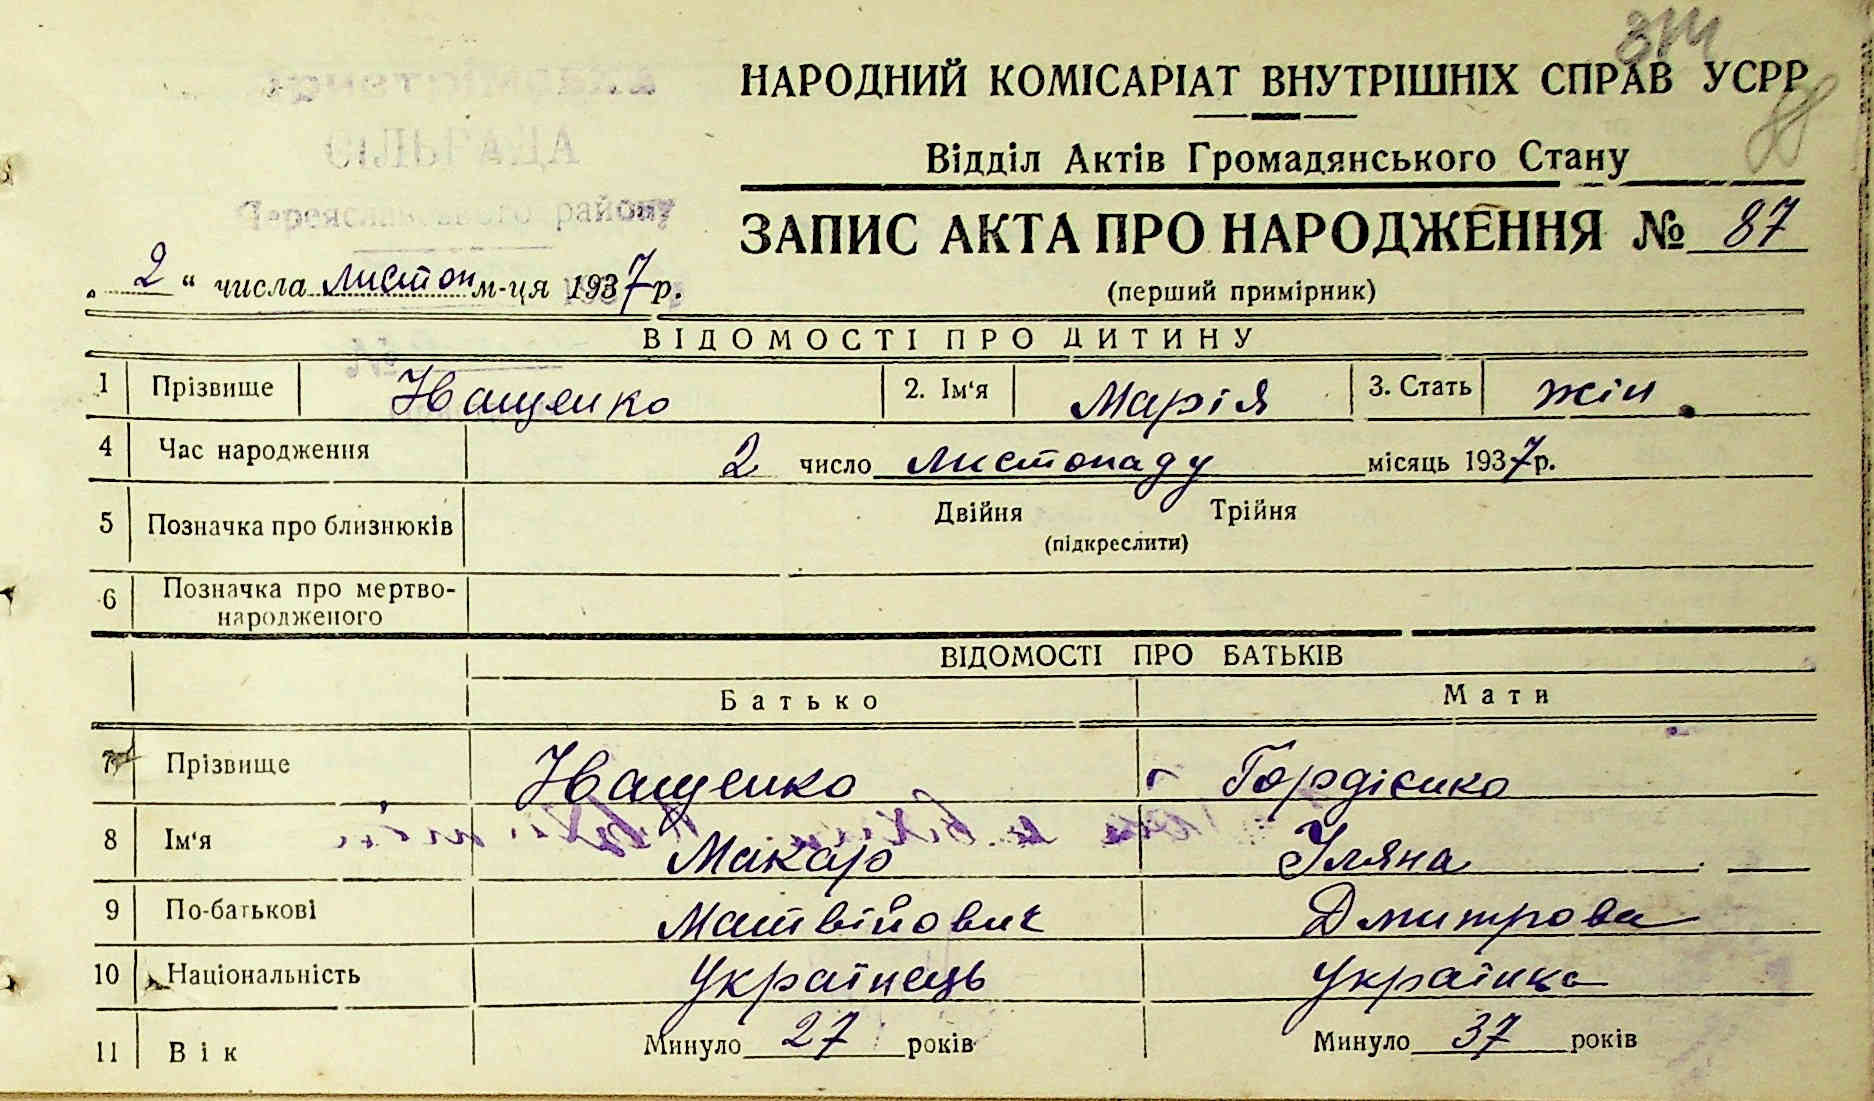 314
НАРОДНИЙ КОМІСАРІАТ ВНУТРІШНІХ СПРАВ УСРР
88
Відділ Актів Громадянського Стану
СІЛЬРАДА
Переяславського району
ЗАПИС АКТА ПРО НАРОДЖЕННЯ № 87
„ 2 “ числа листоп м-ця 1937 р.
(перший примірник)
ВІДОМОСТІ ПРО ДИТИНУ
1 Прізвище Іващенко 2. Ім'я Марія 3. Стать жін.
4 Час народження 2 число листопаду місяць 1937 р.
5 Позначка про близнюків Двійня Трійня
(підкреслити)
6 Позначка про мертво-
народженого
ВІДОМОСТІ ПРО БАТЬКІВ
Батько Мати
7 Прізвище Іващенко Гордієнко
8 Ім'я Макар Уляна
9 По-батькові Матвійович Дмитрова
10 Національність Українець Українка
11 Вік Минуло 27 років Минуло 37 років